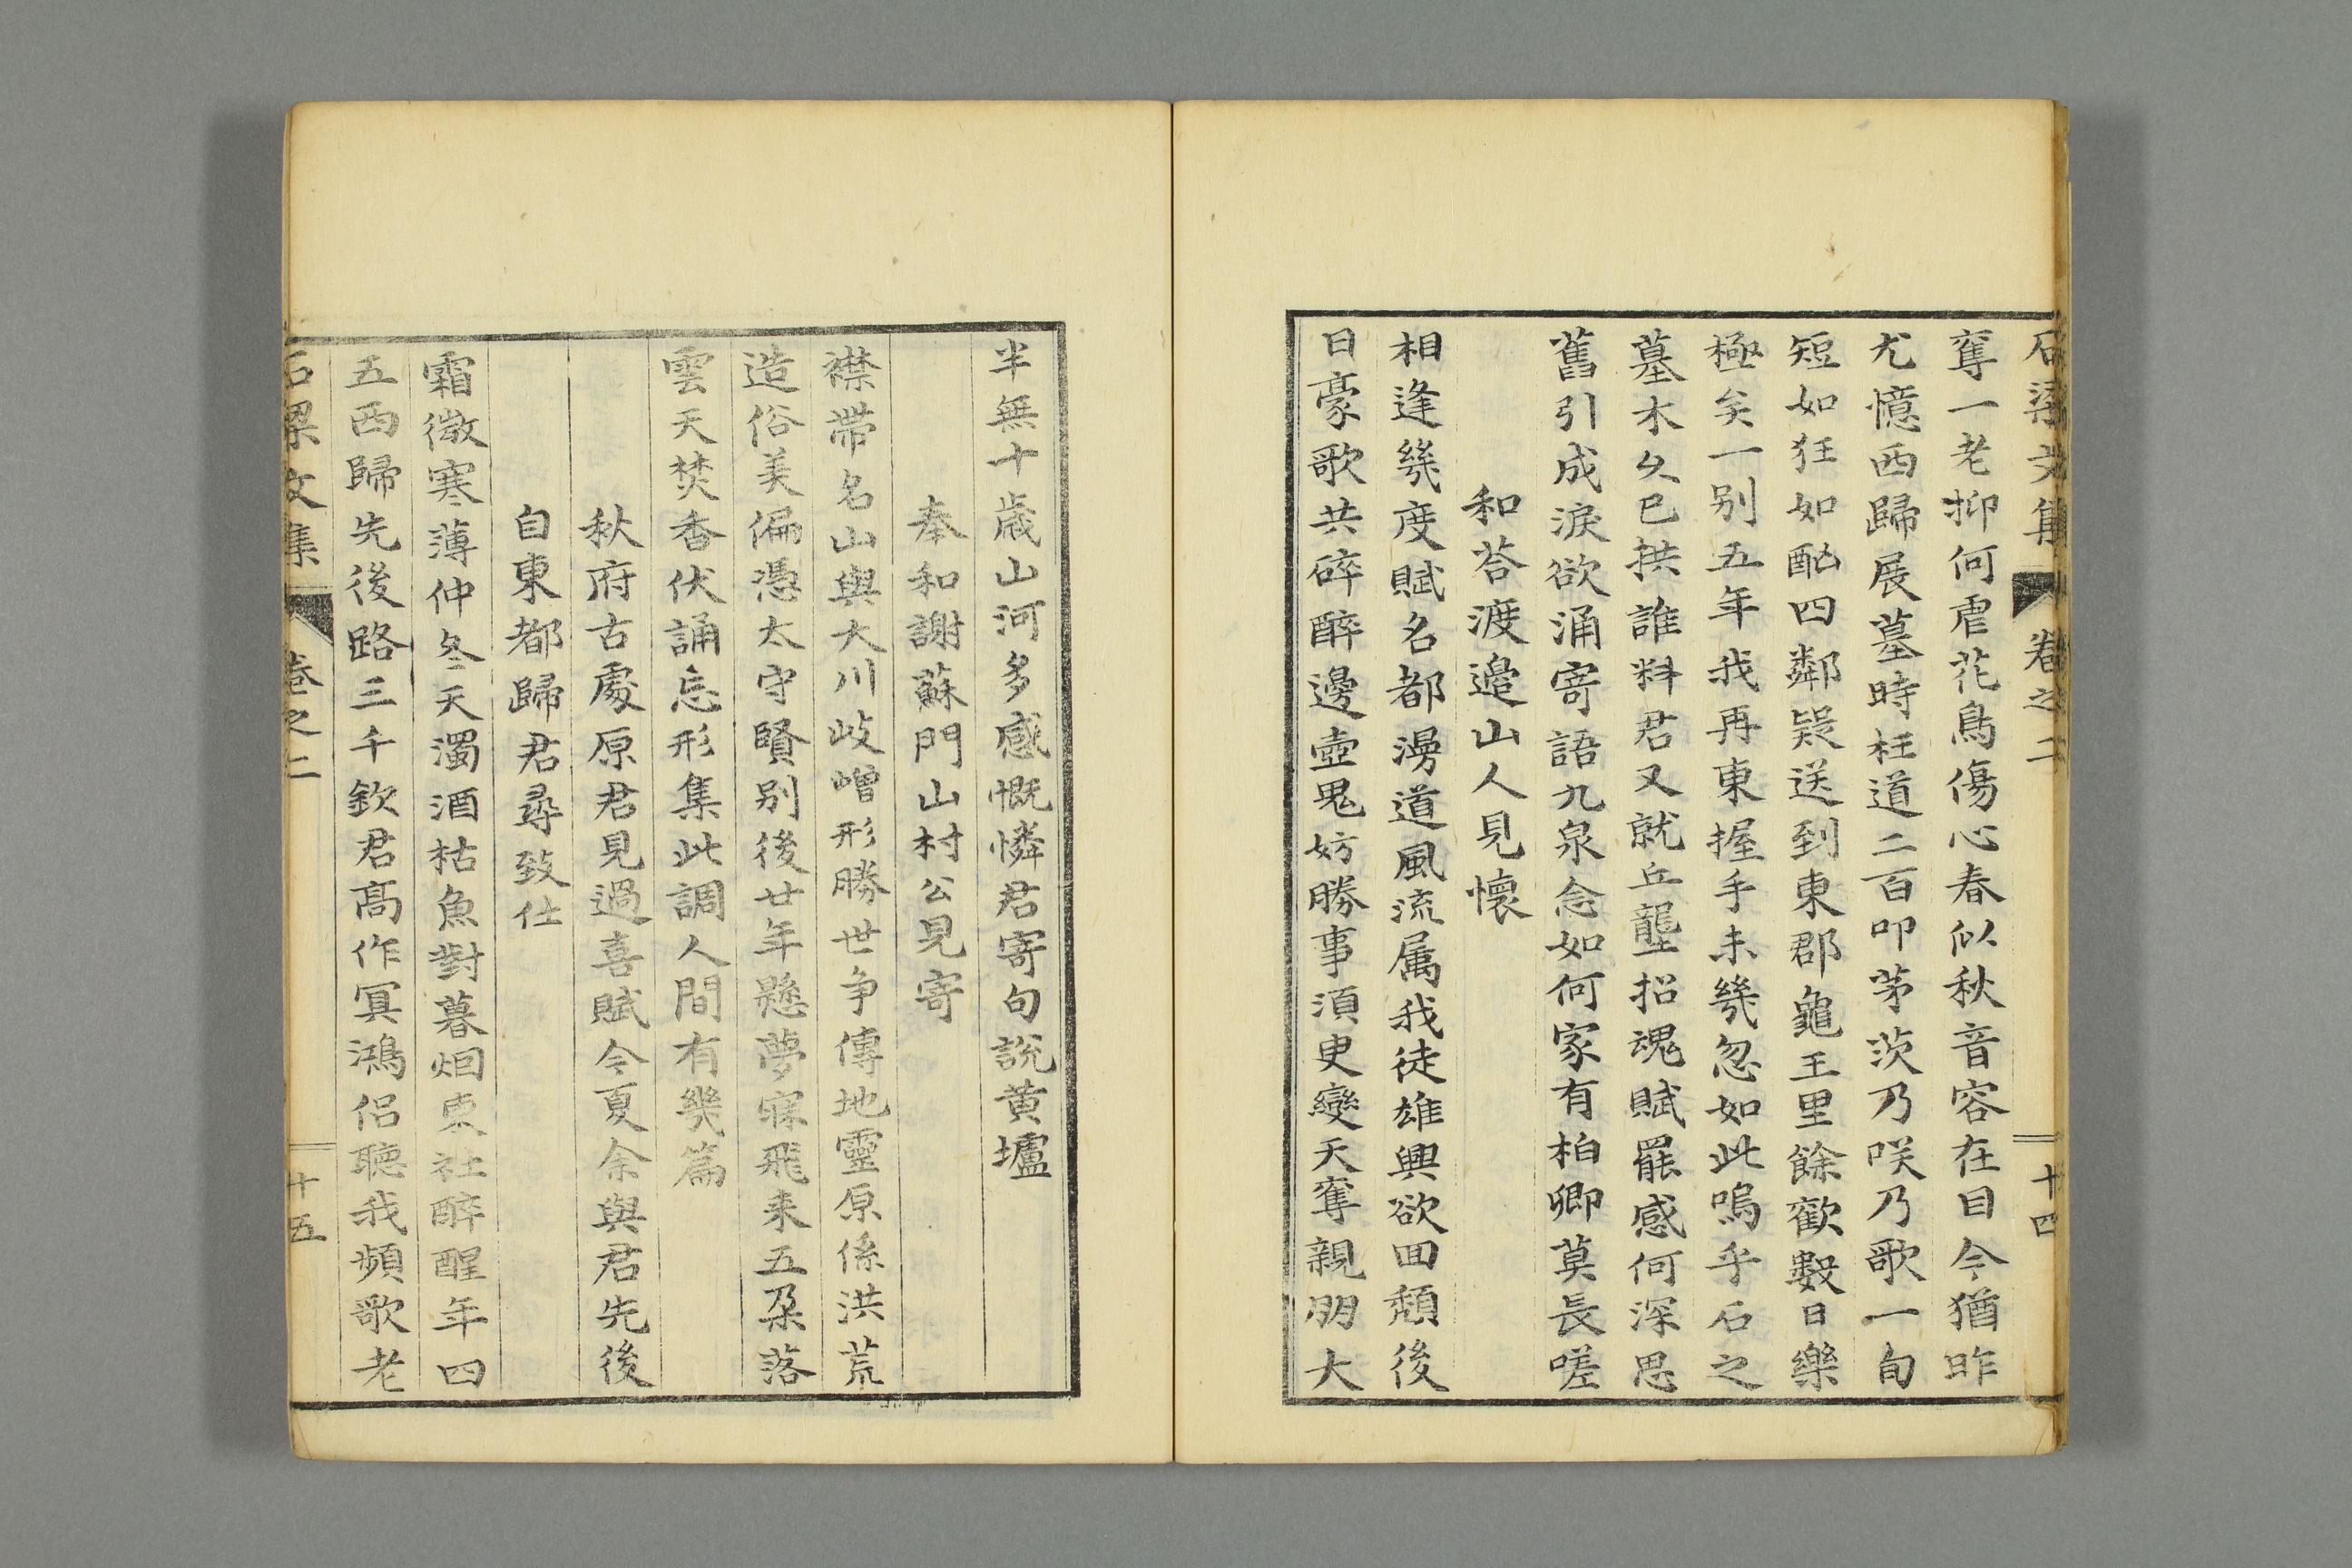 石梁文集 卷之二 十四
奪一老抑何虐花鳥傷心春似秋音容在目今猶昨
尤憶西歸展墓時枉道二百叩茅茨乃咲乃歌一旬
短如狂如酗四鄰疑送到東郡龜王里餘歡數日樂
極矣一别五年我再東握手未幾忽如此嗚乎石之
墓木久已拱誰料君又就丘壟招魂賦罷感何深思
舊引成淚欲涌寄語九泉念如何家有柏卿莫長嗟
和荅渡邉山人見懷
相逢幾度賦名都漫道風流属我徒雄興欲回頽後
日豪歌共碎醉邊壺鬼妨勝事湏臾變天奪親朋大
半無十歳山河多感慨憐君寄句説黄壚
奉和謝蘇門山村公見寄
襟帶名山與大川岐嶒形勝世争傳地靈原係洪荒
造俗美偏憑太守賢别後廿年懸夢寐飛来五朶落
雲天焚香伏誦忘形集此調人間有幾篇
秋府古處原君見過喜賦今夏余與君先後
自東都歸君尋致仕
霜微寒薄仲冬天濁酒枯魚對暮烟東社醉醒年四
五西歸先後路三千欽君髙作冥鴻侣聴我頻歌老
石梁文集 卷之二 十五